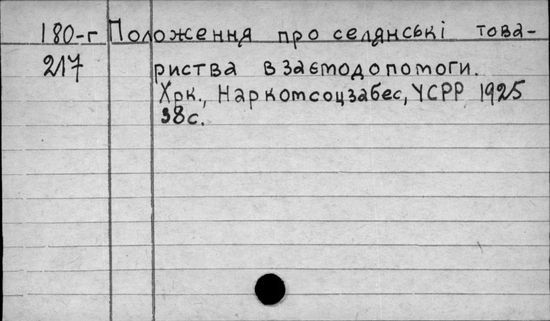 180-г Положення про селянські това-
217 риства взаємодопомоги.
Хрк., Наркомсоцзабес, УСРР 1925
38с.